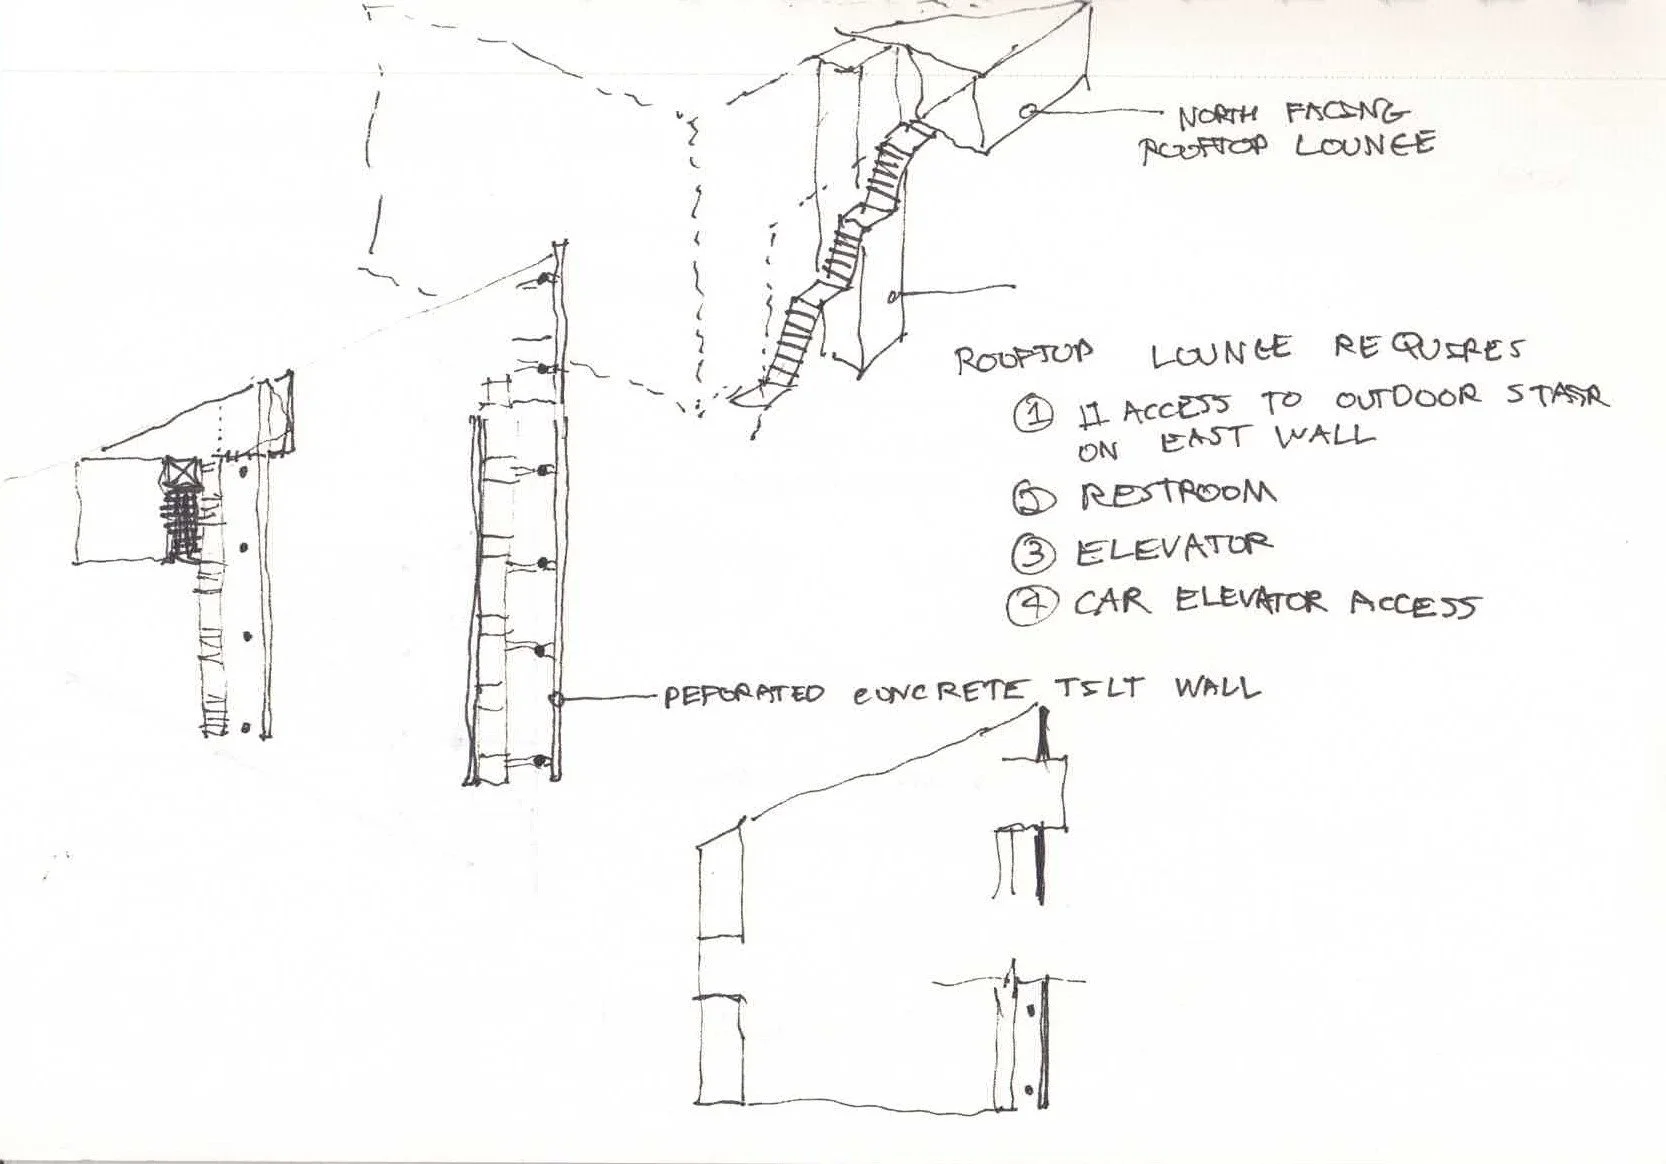 NORTH FACING
ROOFTOP LOUNGE
ROOFTOP LOUNGE REQUIRES
① ACCESS TO OUTDOOR STAIR
ON EAST WALL
② RESTROOM
③ ELEVATOR
④ CAR ELEVATOR ACCESS
PEFORATED CONCRETE TILT WALL